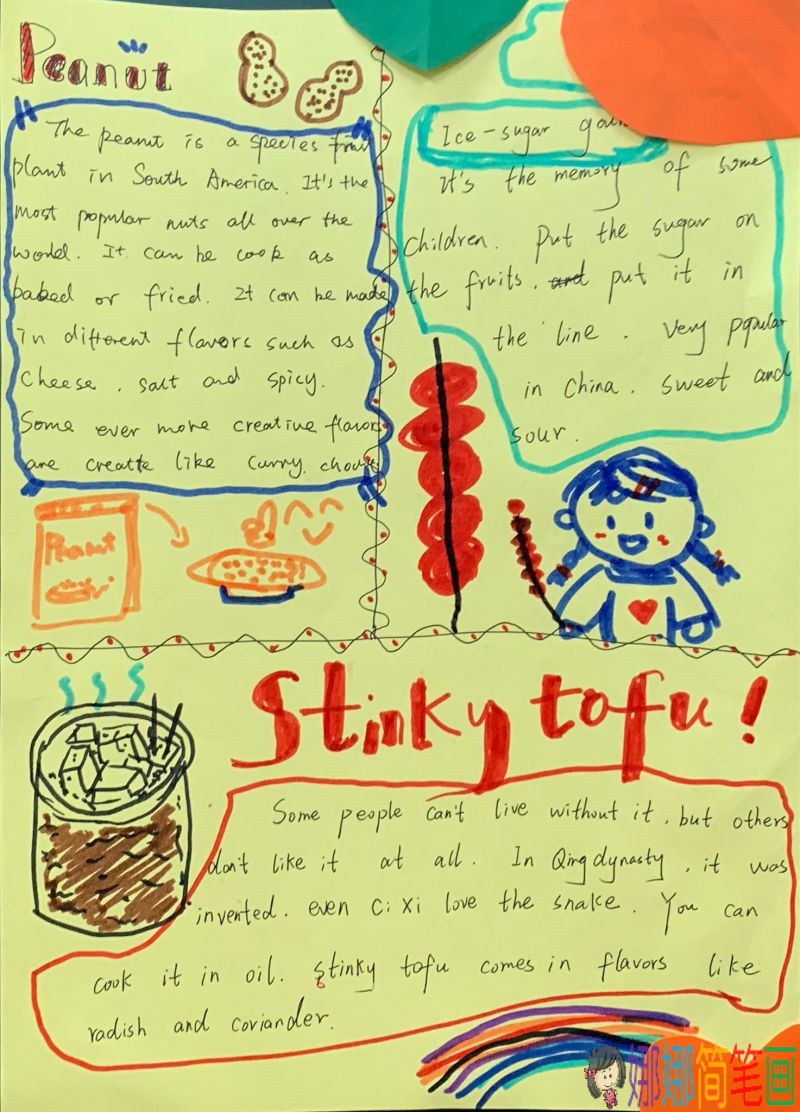 Peanut
The peanut is a species
plant in South America. It's the
most popular nuts all over the
world. It can be cook as
baked or fried. It can be made
in different flavors such as
Cheese, salt and spicy.
Some ever more creative flavors
are creatte like curry,
Peanut
Ice-sugar
it's the memory of some
children. put the sugar on
the fruits. and put it in
the line. Very popular
in China. sweet and
sour.
Stinky tofu!
Some people can't live without it, but others
don't like it at all. In Qing dynasty, it was
invented. even Ci Xi love the snake. You can
cook it in oil. Stinky tofu comes in flavors like
radish and coriander.
娜娜简笔画